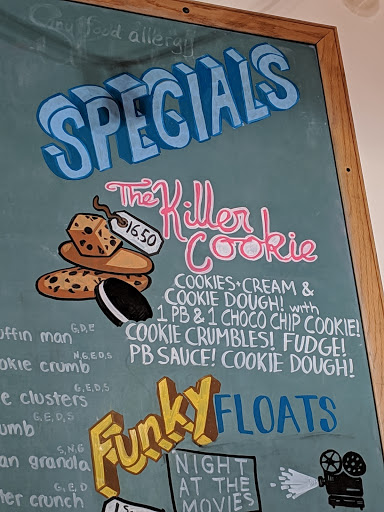 Any food allergy
SPECIALS
The
Killer
Cookie
16.50
COOKIES + CREAM &
COOKIE DOUGH! with
1 PB & 1 CHOCO CHIP COOKIE!
COOKIE CRUMBLES! FUDGE!
PB SAUCE! COOKIE DOUGH!
ffin man G,D,E
okie crumb N,G,E,D,S
e clusters G,E,D,S
umb G,E,D,S
an granola S,N,G
ter crunch G,E,D
Funky
FLOATS
NIGHT
AT THE
MOVIES